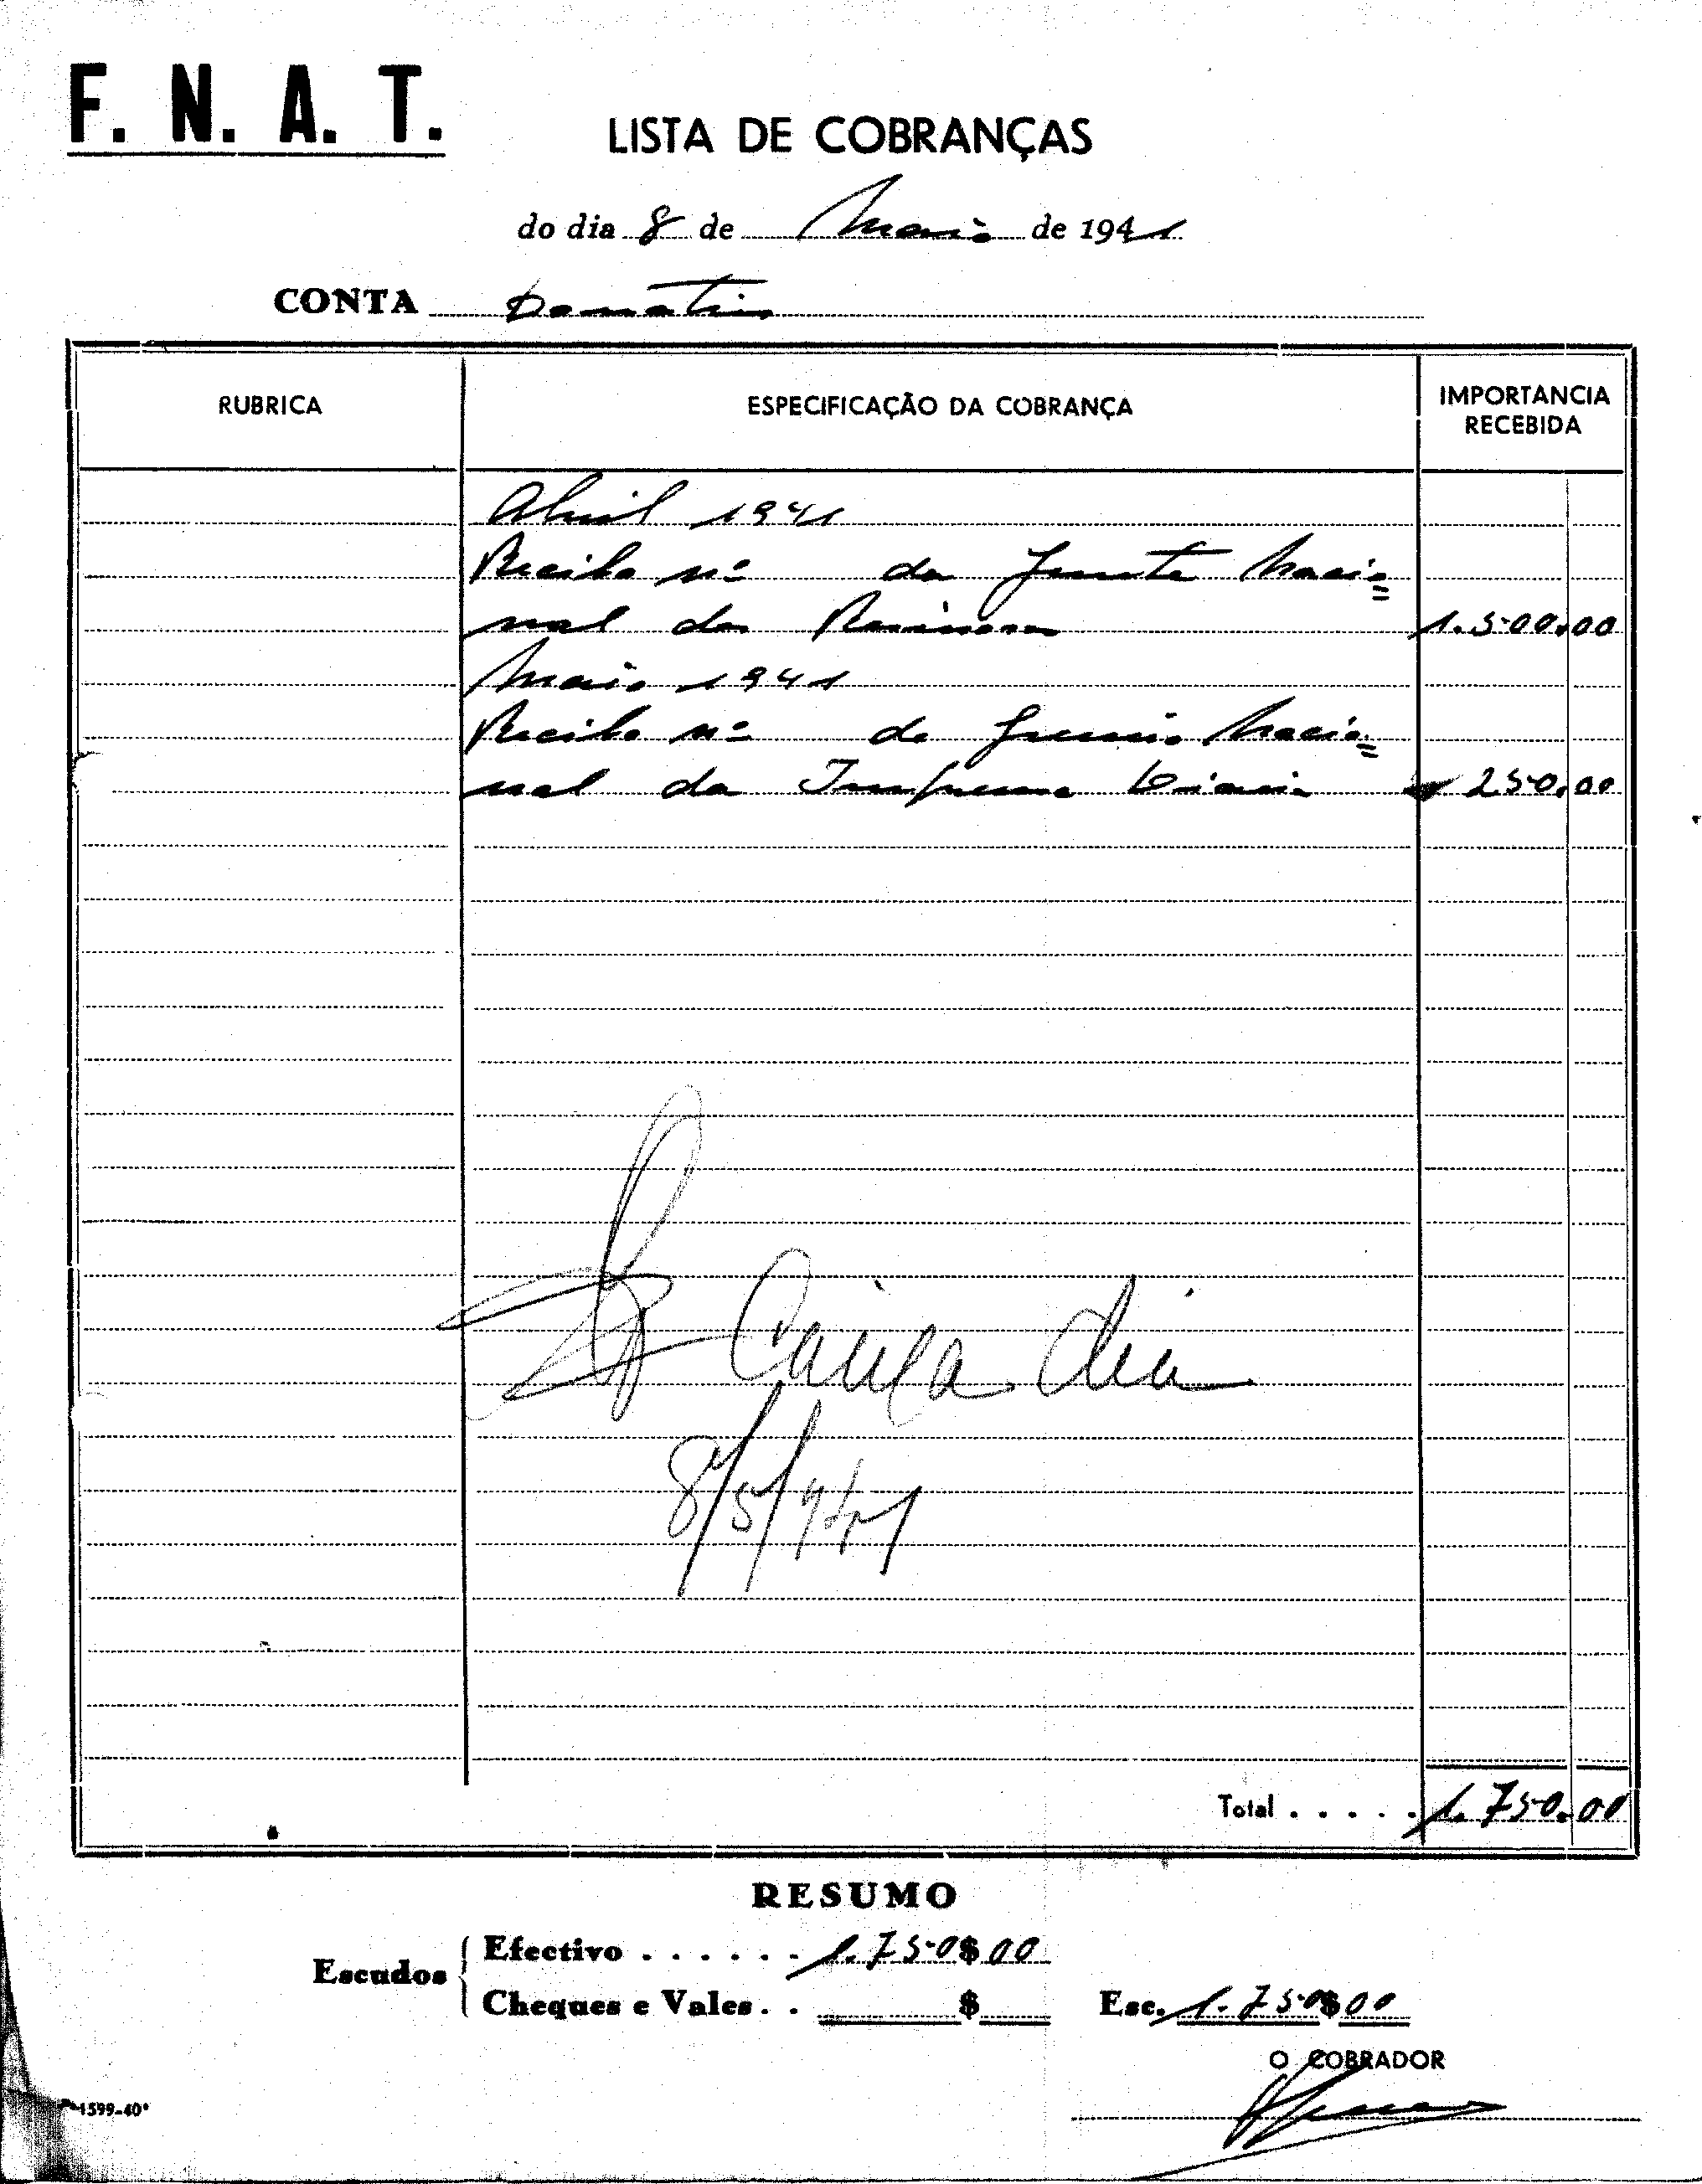 F. N. A. T.
LISTA DE COBRANÇAS
do dia 8 de Maio de 1941
CONTA Donativos
RUBRICA ESPECIFICAÇÃO DA COBRANÇA IMPORTANCIA RECEBIDA
Abril 1941
Recibo nº da Junta Nacio=
nal dos Resinosos 1.500,00
Maio 1941
Recibo nº do Gremio Nacio=
nal da Imprensa Diaria 250,00
8/5/941
Total . . . . . 1.750,00
RESUMO
Escudos
Efectivo . . . . . . 1.750$00
Cheques e Vales. . $ Esc. 1.750$00
O COBRADOR
1599-40*